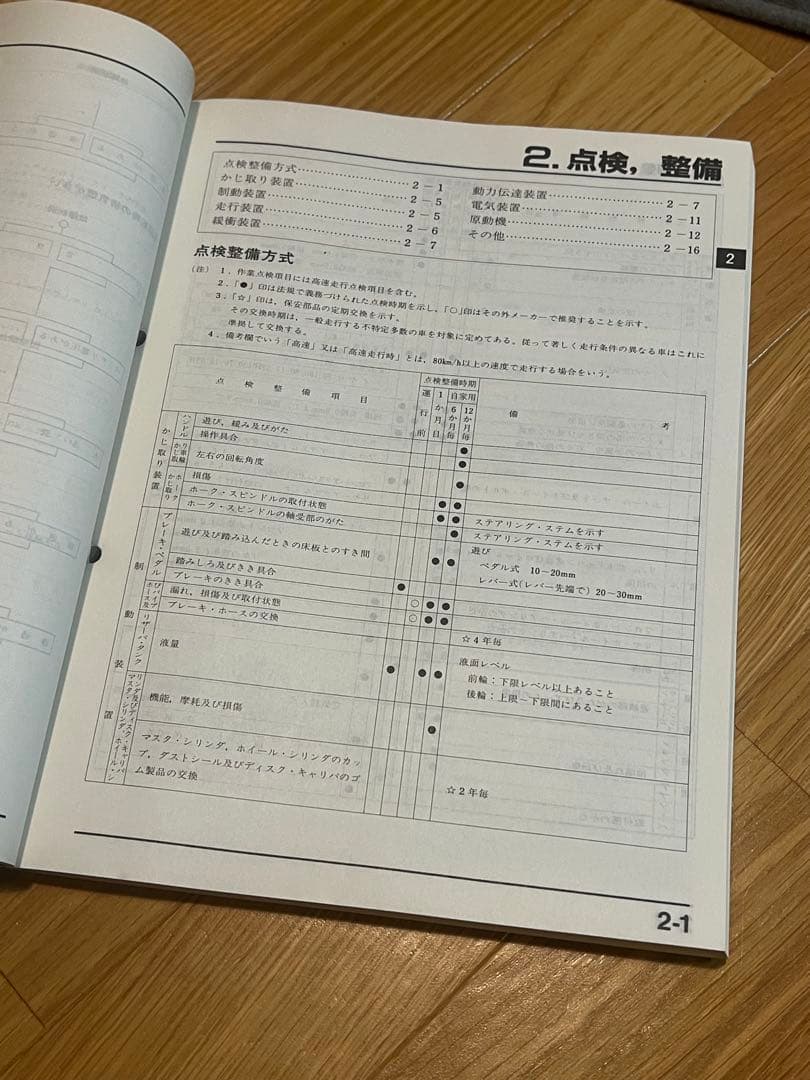 2. 点検, 整備
点検整備方式……………………2－1
かじ取り装置……………………2－5
制動装置……………………2－5
走行装置……………………2－6
緩衝装置……………………2－7
動力伝達装置……………………2－7
電気装置……………………2－11
原動機……………………2－12
その他……………………2－16
2
点検整備方式
(注) 1．作業点検項目には高速走行点検項目を含む。
2．「●」印は法規で義務づけられた点検時期を示し、「○」印はその外メーカーで推奨することを示す。
3．「☆」印は、保安部品の定期交換を示す。
その交換時期は、一般走行する不特定多数の車を対象に定めてある。従って著しく走行条件の異なる車はこれに
準拠して交換する。
4．備考欄でいう「高速」又は「高速走行時」とは、80km/h以上の速度で走行する場合をいう。
点検整備項目
点検整備時期
運行前
1か月目
自家用
6か月毎
12か月毎
備考
かじ取り装置
ハンドル
遊び，緩み及びがた ●
操作具合 ●
かじ取り車輪
左右の回転角度 ●
かじ取りホーク
損傷 ● ●
ホーク・スピンドルの取付状態 ● ● ステアリング・ステムを示す
ホーク・スピンドルの軸受部のがた ● ステアリング・ステムを示す
制動装置
ブレーキ・ペダル
遊び及び踏み込んだときの床板とのすき間 ● ● 遊び
ペダル式 10－20mm
レバー式(レバー先端で) 20－30mm
踏みしろ及びきき具合 ●
ブレーキのきき具合 ○ ● ●
ホース及びパイプ
漏れ，損傷及び取付状態 ○ ● ●
ブレーキ・ホースの交換 ☆4年毎
リザーバ・タンク
液量 ● ● ● 液面レベル
前輪：下限レベル以上あること
後輪：上限－下限間にあること
マスタ・シリンダ，ホイール・シリンダ及びディスク・キャリパ
機能，摩耗及び損傷 ●
マスタ・シリンダ，ホイール・シリンダのカッ
プ，ダストシール及びディスク・キャリパのゴ
ム製品の交換 ☆2年毎
2-1